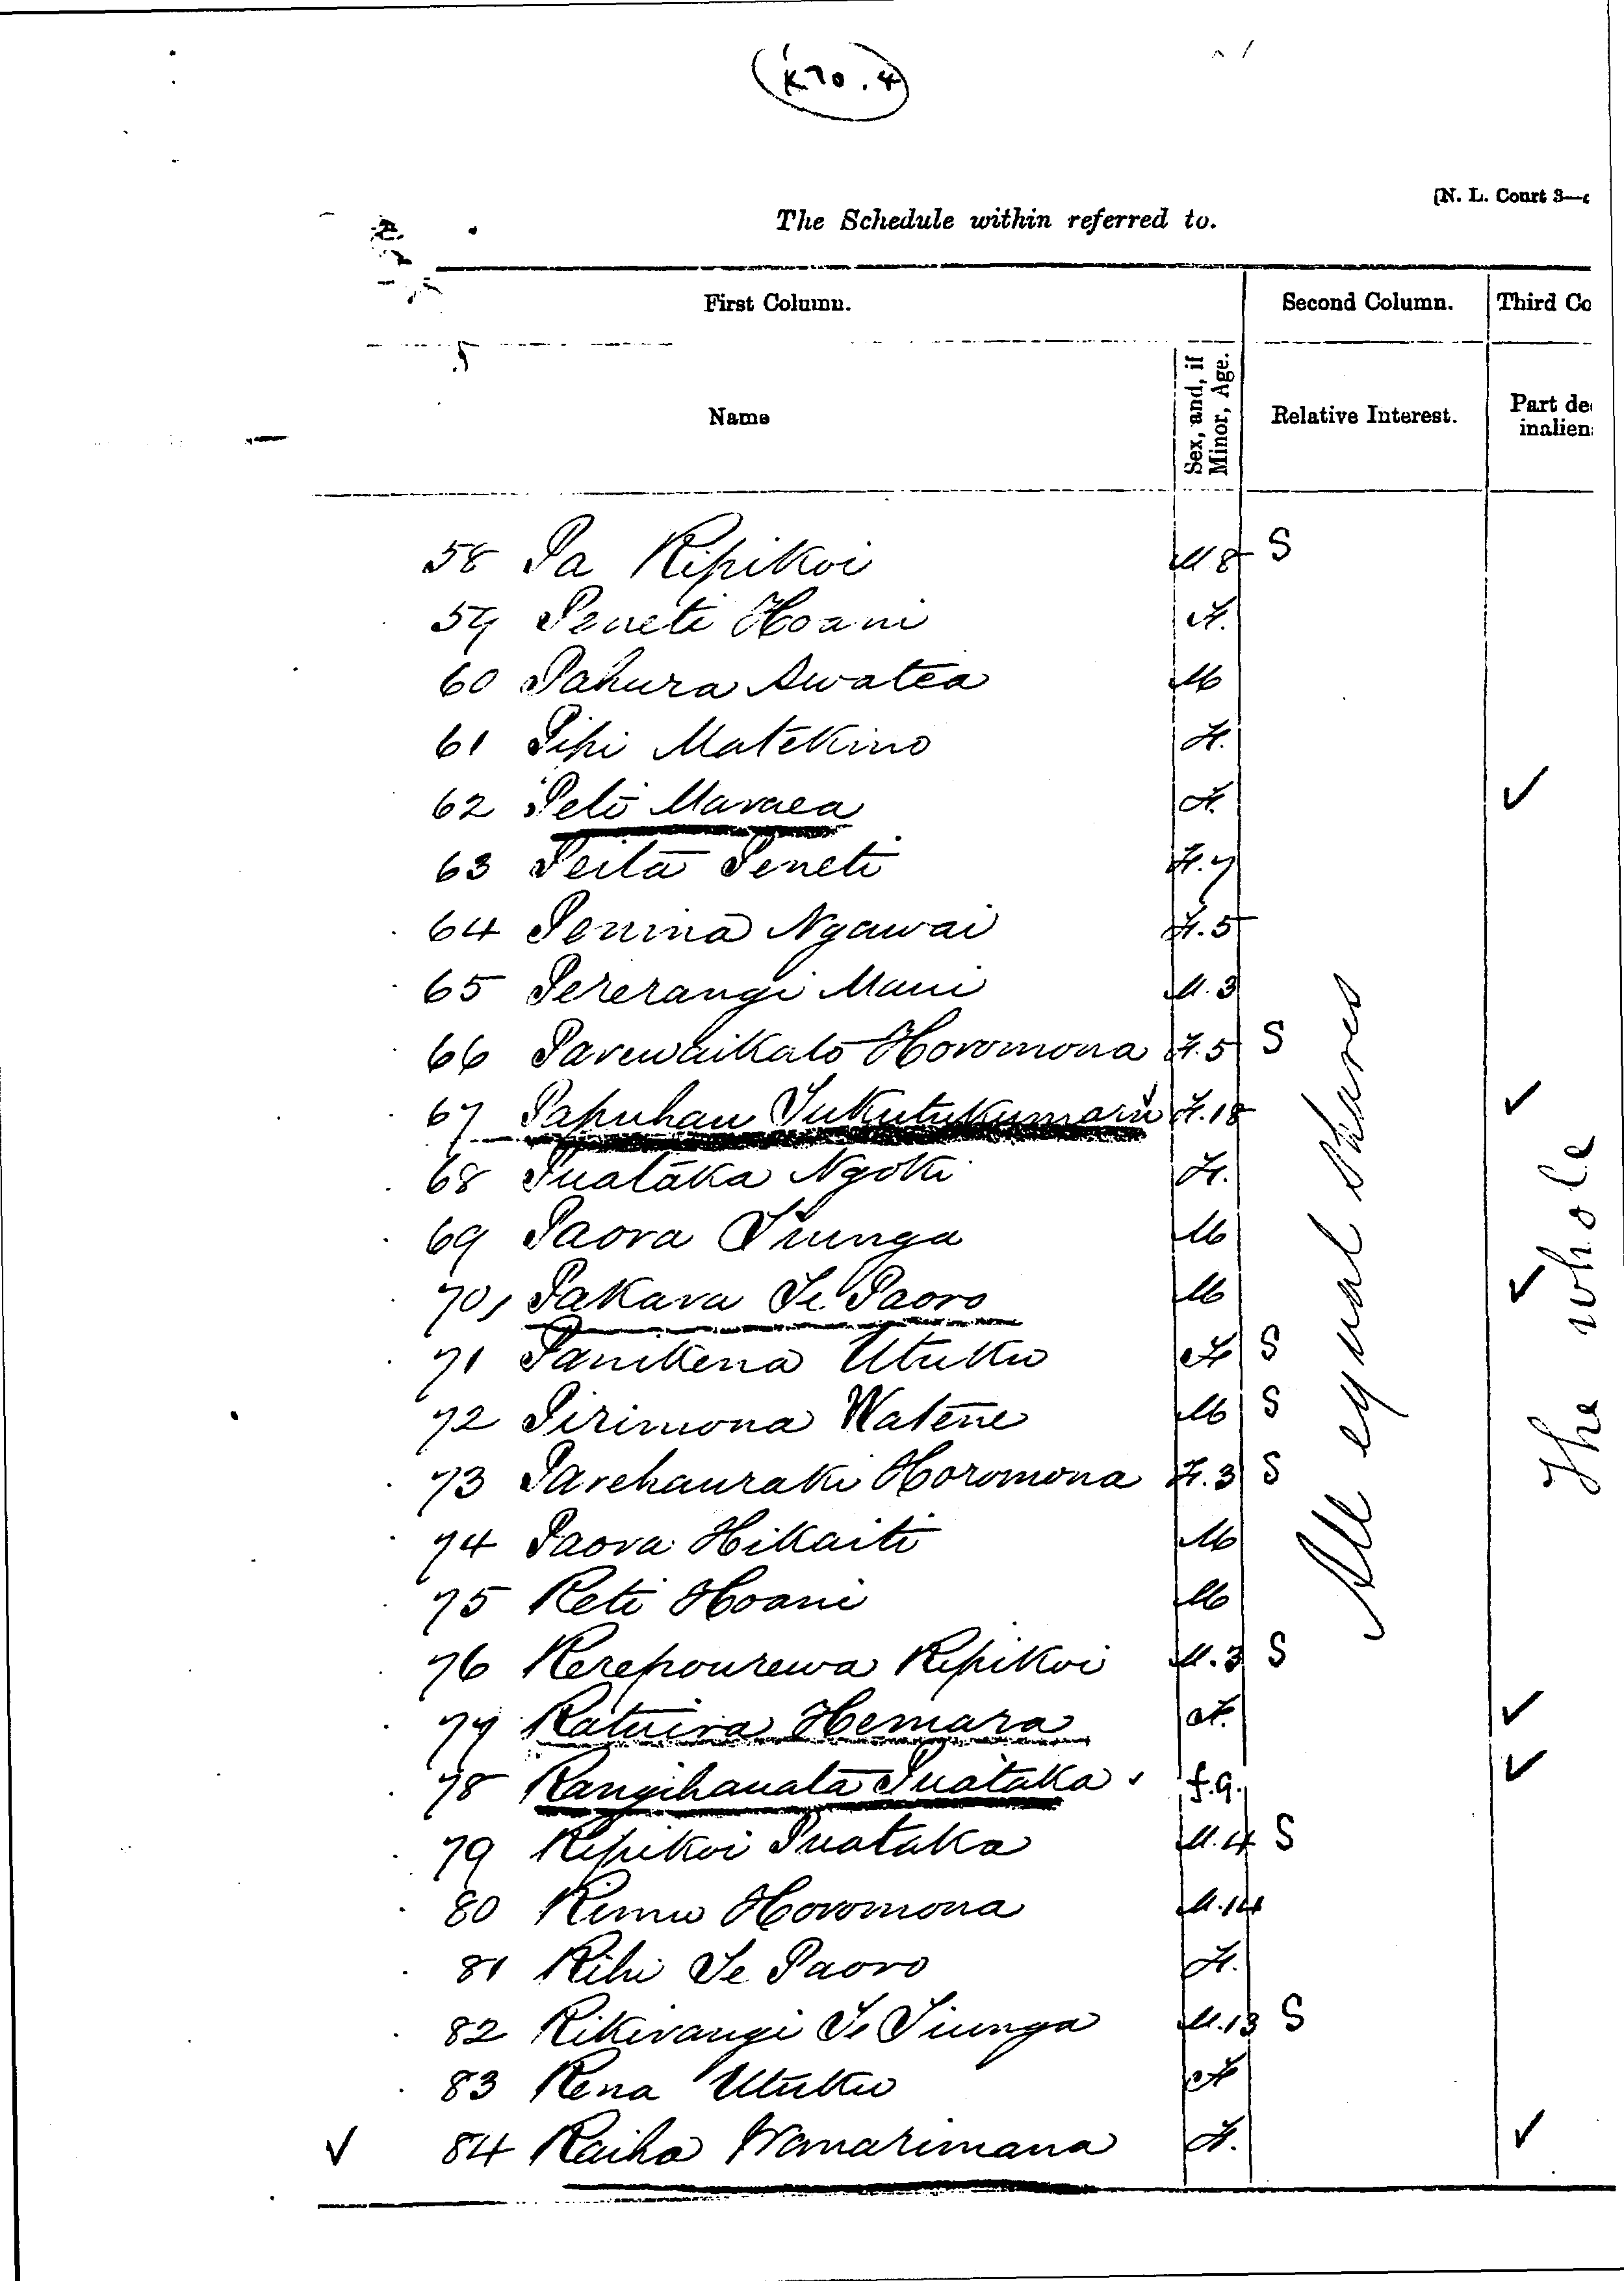 K70.4
(N. L. Court 3—
The Schedule within referred to.
First Column. Second Column. Third Co
Name Sex, and, if Minor, Age. Relative Interest. Part de inalien
58 Pa Ripikoi M 8 S
59 Peneti Hoani F.
60 Pahura Awatea M
61 Pipi Matekino F.
62 Peti Maraea F. ✓
63 Peita Peneti F. 7
64 Penina Ngawai F. 5
65 Pererangi Maui M. 3
66 Parewaikato Horomona F. 5 S
67 Papuhau Tukutukumaru F. 18 ✓
68 Puataka Ngoki F.
69 Paora Tiunga M
70 Pakara Te Paoro M ✓
71 Panikena Utuku F S
72 Pirimona Watene M S
73 Parehauraki Horomona F. 3 S
74 Paora Hikaiti M
75 Reti Hoani M
76 Rerepourewa Ripikoi M. 3 S
77 Ratuira Hemara F. ✓
78 Rangihauata Puataka f. 9. ✓
79 Ripikoi Puataka M. 4 S
80 Rimu Horomona M. 14
81 Rihi Te Paoro F.
82 Rikirangi Te Tiunga M. 13 S
83 Rena Utuku F
✓ 84 Raiha Wamarimana F. ✓
All equal shares
The whole